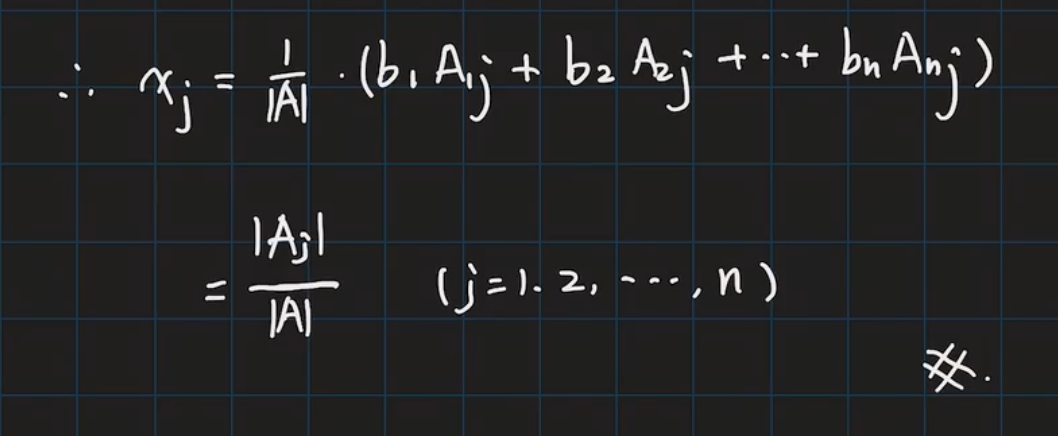 ∴ x_j = 1/|A| · (b₁A₁j + b₂A₂j + ··· + bₙAₙj)
= |A_j|/|A| (j=1. 2, ···, n)
※.